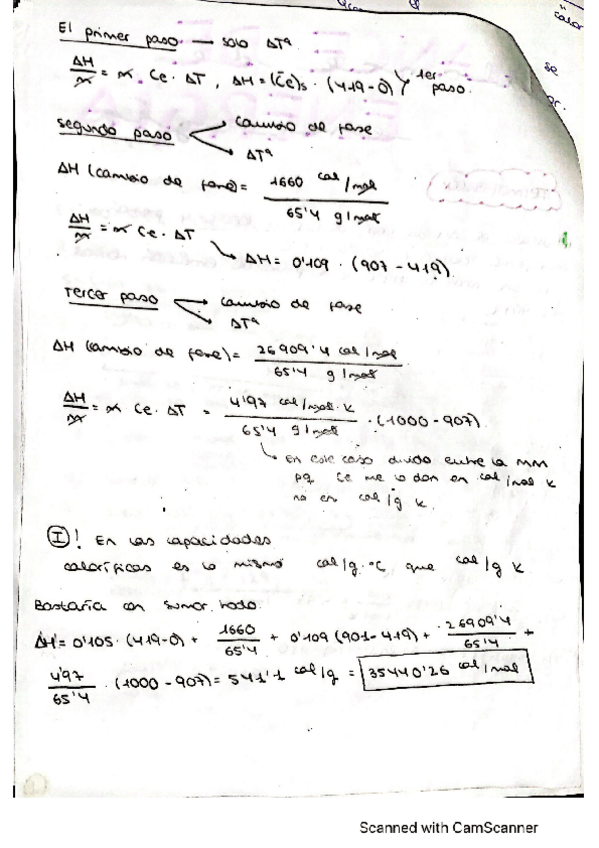 El primer paso → solo ΔTª
ΔH/m = m · Ce · ΔT, ΔH = (Ce)s · (419-0) } 1er paso.
segundo paso → cambio de fase
→ ΔTª
ΔH (cambio de fase) = 1660 cal/mol / 65'4 g/mol
ΔH/m = m Ce · ΔT
→ ΔH = 0'109 · (907-419)
Tercer paso → cambio de fase
→ ΔTª
ΔH (cambio de fase) = 26909'4 cal/mol / 65'4 g/mol
ΔH/m = m Ce · ΔT = 4'97 cal/mol·k / 65'4 g/mol · (1000-907)
→ en este caso divido entre la MM
pq Ce me lo dan en cal/mol k
no en cal/g k.
I ! En las capacidades
caloríficas es lo mismo cal/g·ºC que cal/g k
Bastaría con sumar todo.
ΔH = 0'105 · (419-0) + 1660/65'4 + 0'109 (901-419) + 26909'4/65'4 +
4'97/65'4 · (1000-907) = 541'1 cal/g = 35440'26 cal/mol
Scanned with CamScanner